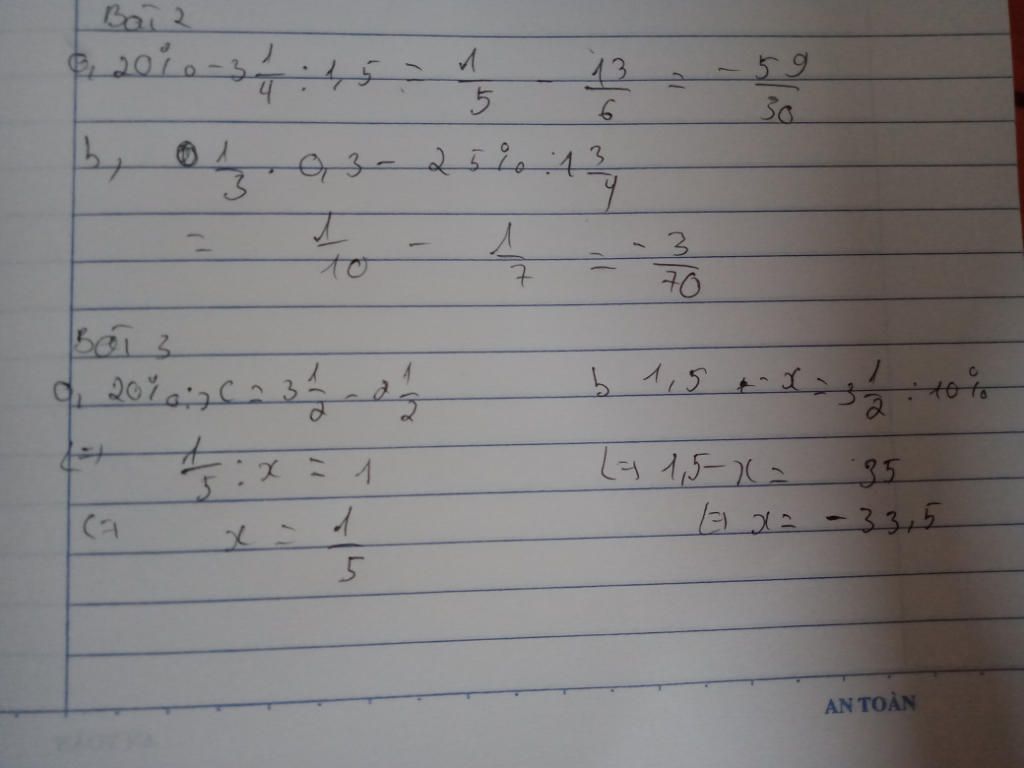 Bài 2
a, 20% - 3 1/4 : 1,5 = 1/5 - 13/6 = -59/30
b, 1/3 . 0,3 - 25% : 1 3/4
= 1/10 - 1/7 = -3/70
Bài 3
a, 20% : x = 3 1/2 - 2 1/2
<=> 1/5 : x = 1
<=> x = 1/5
b 1,5 - x = 3 1/2 : 10%
<=> 1,5 - x = 35
<=> x = -33,5
AN TOÀN